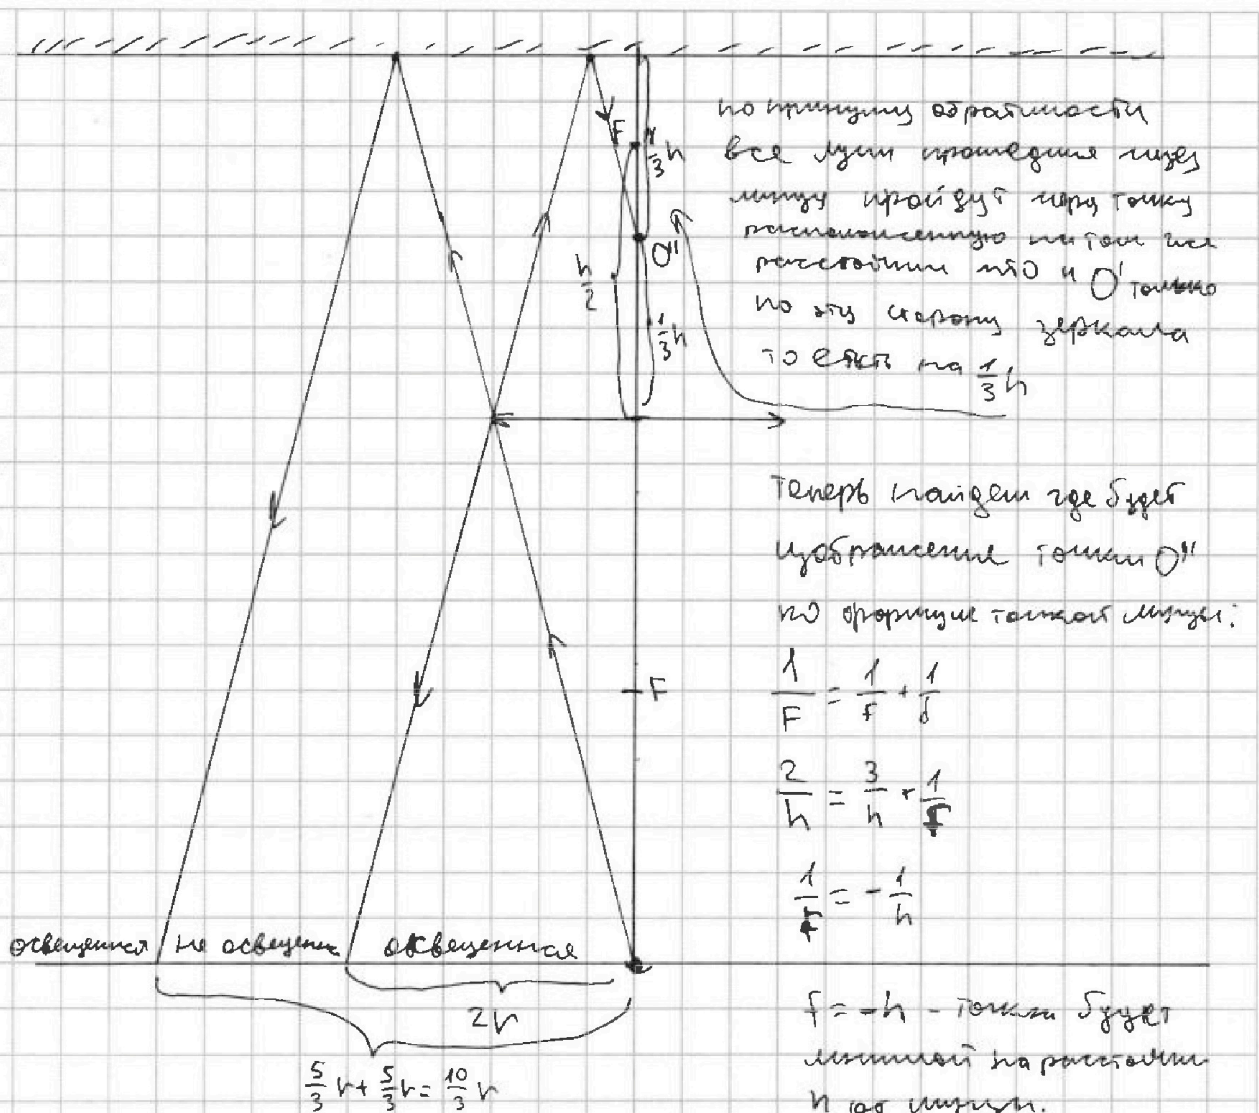 по принципу обратимости
все лучи прошедшие через
линзу пройдут через точку
расположенную на том же
расстоянии что и O' только
по эту сторону зеркала
то есть на 1/3 h
F
1/3 h
O''
h/2
1/3 h
теперь найдем где будет
изображение точки O''
по формуле тонкой линзы:
1/F = 1/f + 1/d
F
2/h = 3/h + 1/f
1/f = - 1/h
освещенная не освещенная освещенная
2r
5/3 r + 5/3 r = 10/3 r
f = -h - точка будет
мнимой на расстоянии
h от линзы.